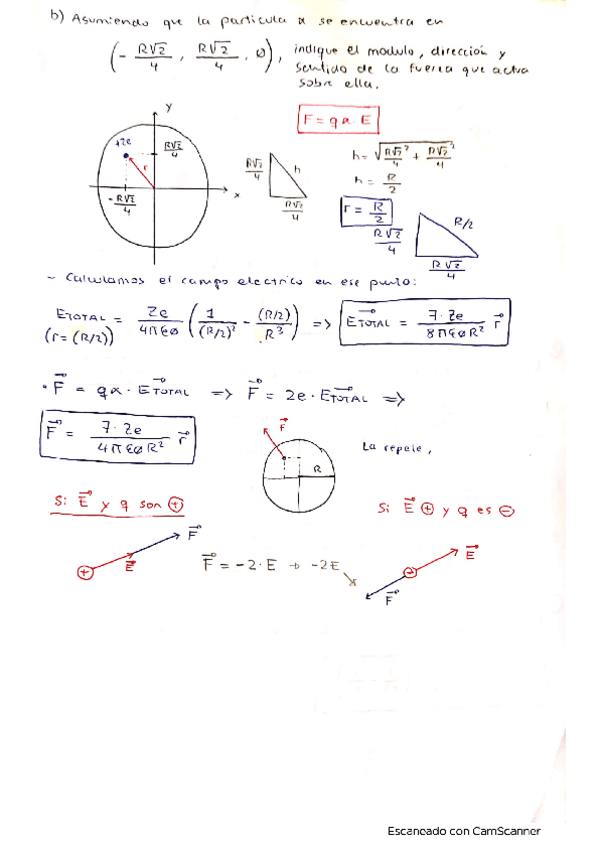 b) Asumiendo que la particula α se encuentra en
(- R√2/4 , R√2/4 , 0), indique el modulo, dirección y
sentido de la fuerza que actua
sobre ella.
F = qα · E
y
+2e
R√2/4
r
x
-R√2/4
R√2/4
h
R√2/4
h = √(R√2/4² + R√2/4²)
h = R/2
r = R/2
R√2/4
R/2
R√2/4
- Calculamos el campo electrico en ese punto:
ETOTAL = Ze/4πε0 (1/(R/2)² - (R/2)/R³) => ETOTAL = 7·Ze/8πε0R² r
(r = (R/2))
· F = qα · ETOTAL => F = 2e · ETOTAL =>
F = 7·Ze/4πε0R² r
F
R
La repele,
Si E y q son +
Si E + y q es -
F
E
+
F = -2·E → -2E
E
-
F
Escaneado con CamScanner